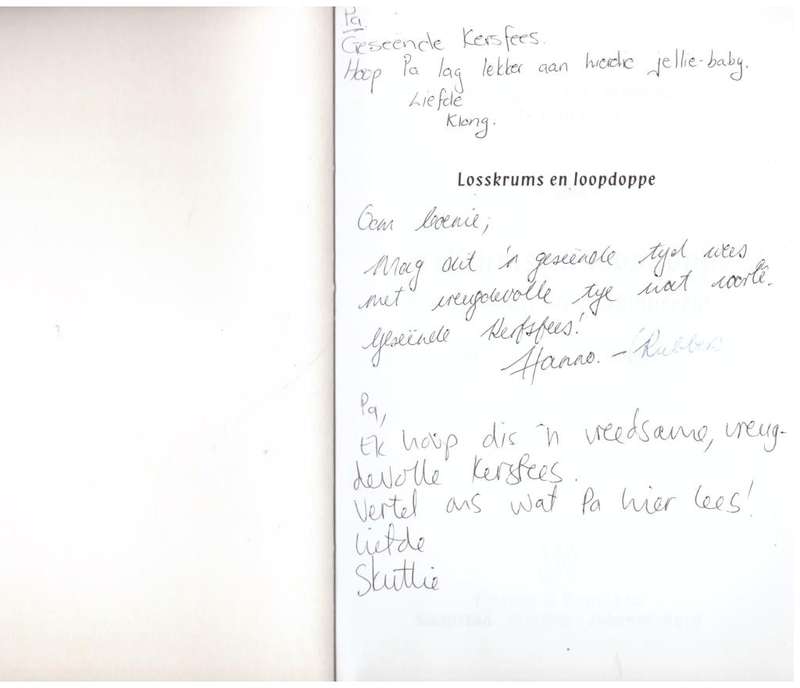 Pa
Geseende Kersfees.
Hoop Pa lag lekker aan hierdie jellie-baby.
Liefde
Klong.
Losskrums en loopdoppe
Oom
Mag dit 'n geseënde tyd wees
met vreugdevolle tye wat voorlê.
Geseënde Kersfees!
Hanno. - (Rubber
Pa,
Ek hoop dis 'n vreedsame, vreug-
devolle Kersfees.
Vertel ons wat Pa hier lees!
Liefde
Skuttie